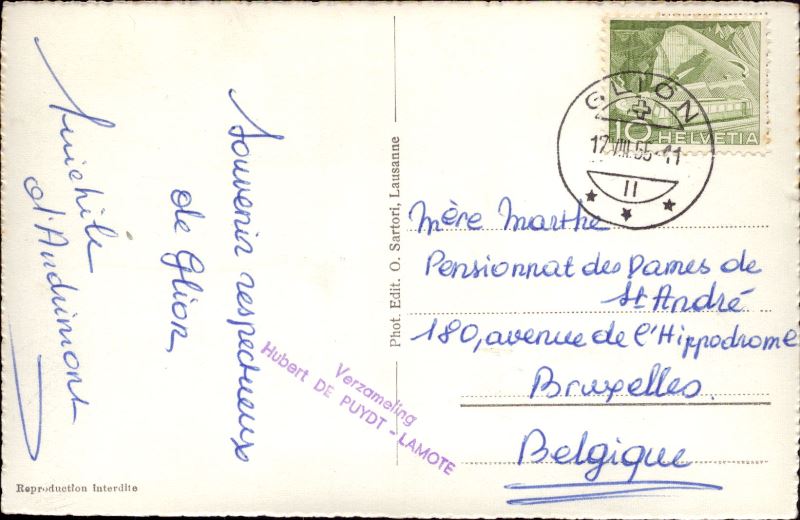 Souvenir respectueux
de Glion,
d'Andrimont
Verzameling
Hubert DE PUYDT - LAMOTE
Reproduction interdite
Phot. Edit. O. Sartori, Lausanne
10 HELVETIA
GLION
12.VIII.55-11
II
Mère Marthe
Pensionnat des Dames de
St André
180, avenue de l'Hippodrome
Bruxelles.
Belgique